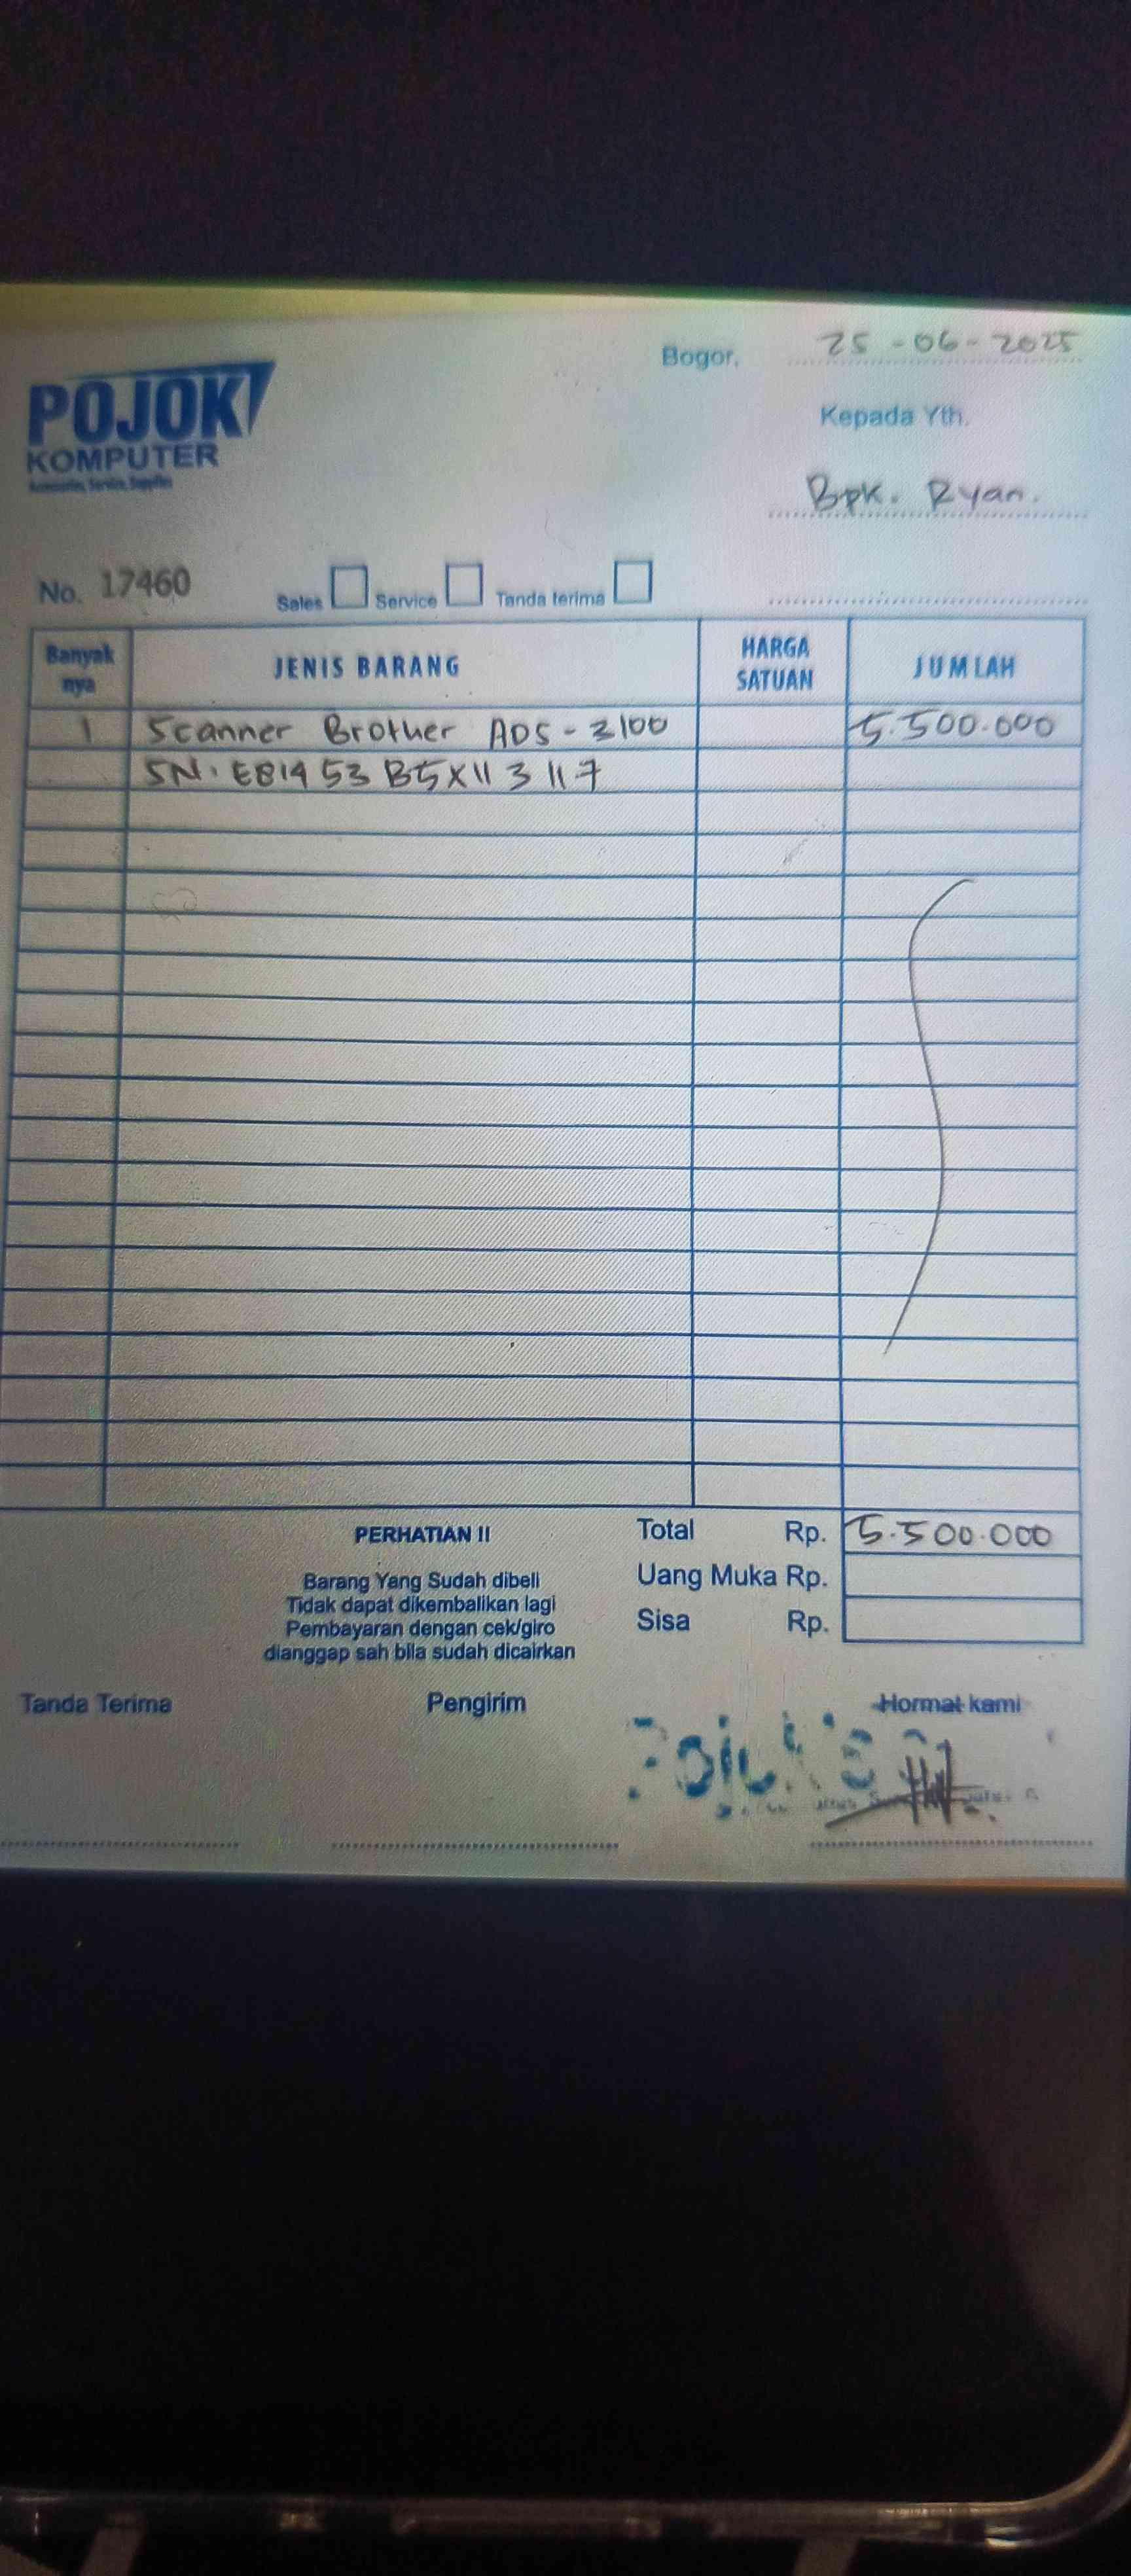 Bogor, 25-06-2025
POJOK
KOMPUTER
Accessories, Service, Supplies
Kepada Yth.
Bpk. Ryan.
No. 17460
Sales Service Tanda terima
Banyak nya JENIS BARANG HARGA SATUAN JUMLAH
1 Scanner Brother ADS-3100 5.500.000
SN. E81453B5X113117
Total Rp. 5.500.000
Uang Muka Rp.
Sisa Rp.
PERHATIAN !!
Barang Yang Sudah dibeli
Tidak dapat dikembalikan lagi
Pembayaran dengan cek/giro
dianggap sah bila sudah dicairkan
Tanda Terima Pengirim Hormat kami